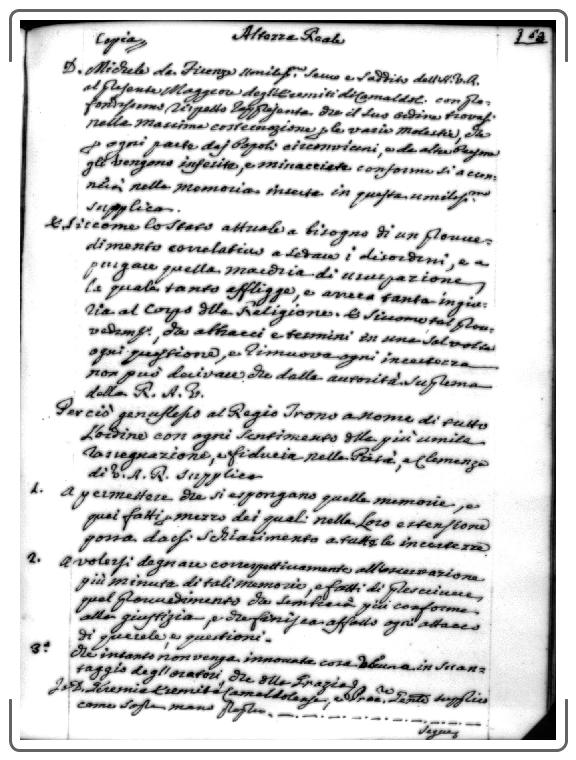 Copia
Altezza Reale
163
D. Michele da Firenze umiliss.mo Servo e Suddito dell'A.V.R.
al presente Maggiore degl'Eremiti di Camaldol: con pro-
fondissimo rispetto rappresenta che il suo ordine trovasi
nella massima costernazione p le varie molestie, che
p ogni parte da popoli circonvicini, e da altre persone
gli vengono inferite, e minacciate conforme si accen-
nerà nella memoria inserta in questa umiliss.ma
supplica.
E Siccome lo Stato attuale a bisogno di un provve-
dimento correlativo a sedare i disordini, e a
purgare quella materia di usurpazione,
la quale tanto affligge, e arreca tanta ingiu-
ria al Corpo dlla Religione. E Siccome tal prov-
vedim.to, che abbracci e termini in una sol volta
ogni questione, e rimuova ogni incertezza
non può derivare che dalla autorità suprema
della R. A. V.
Perciò genuflesso al Regio Trono a nome di tutto
l'ordine con ogni sentimento dlla più umile
rassegnazione, e fiducia nella Pietà, e Clemenza
di V. A. R. supplica
1. A permettere che si espongano quelle memorie, e
quei fatti p mezzo dei quali nella loro estensione
possa darsi schiarimento a tutte le incertezze
2. A volersi degnare corrispettivamente all'osservazione
più minuta di tali memorie, e fatti di prescrivere,
quel provvedimento che sembrerà più conforme
alla giustizia, e che finisca affatto ogni attacco
di querele, e questioni.
3.° Che intanto non venga innovata cosa alcuna in svan-
taggio degl'oratori, che dlla Grazia
Io D. Geremia Eremita Camaldolense, e Proc.re Gen.le supplico
come sopra mano propria
Segue